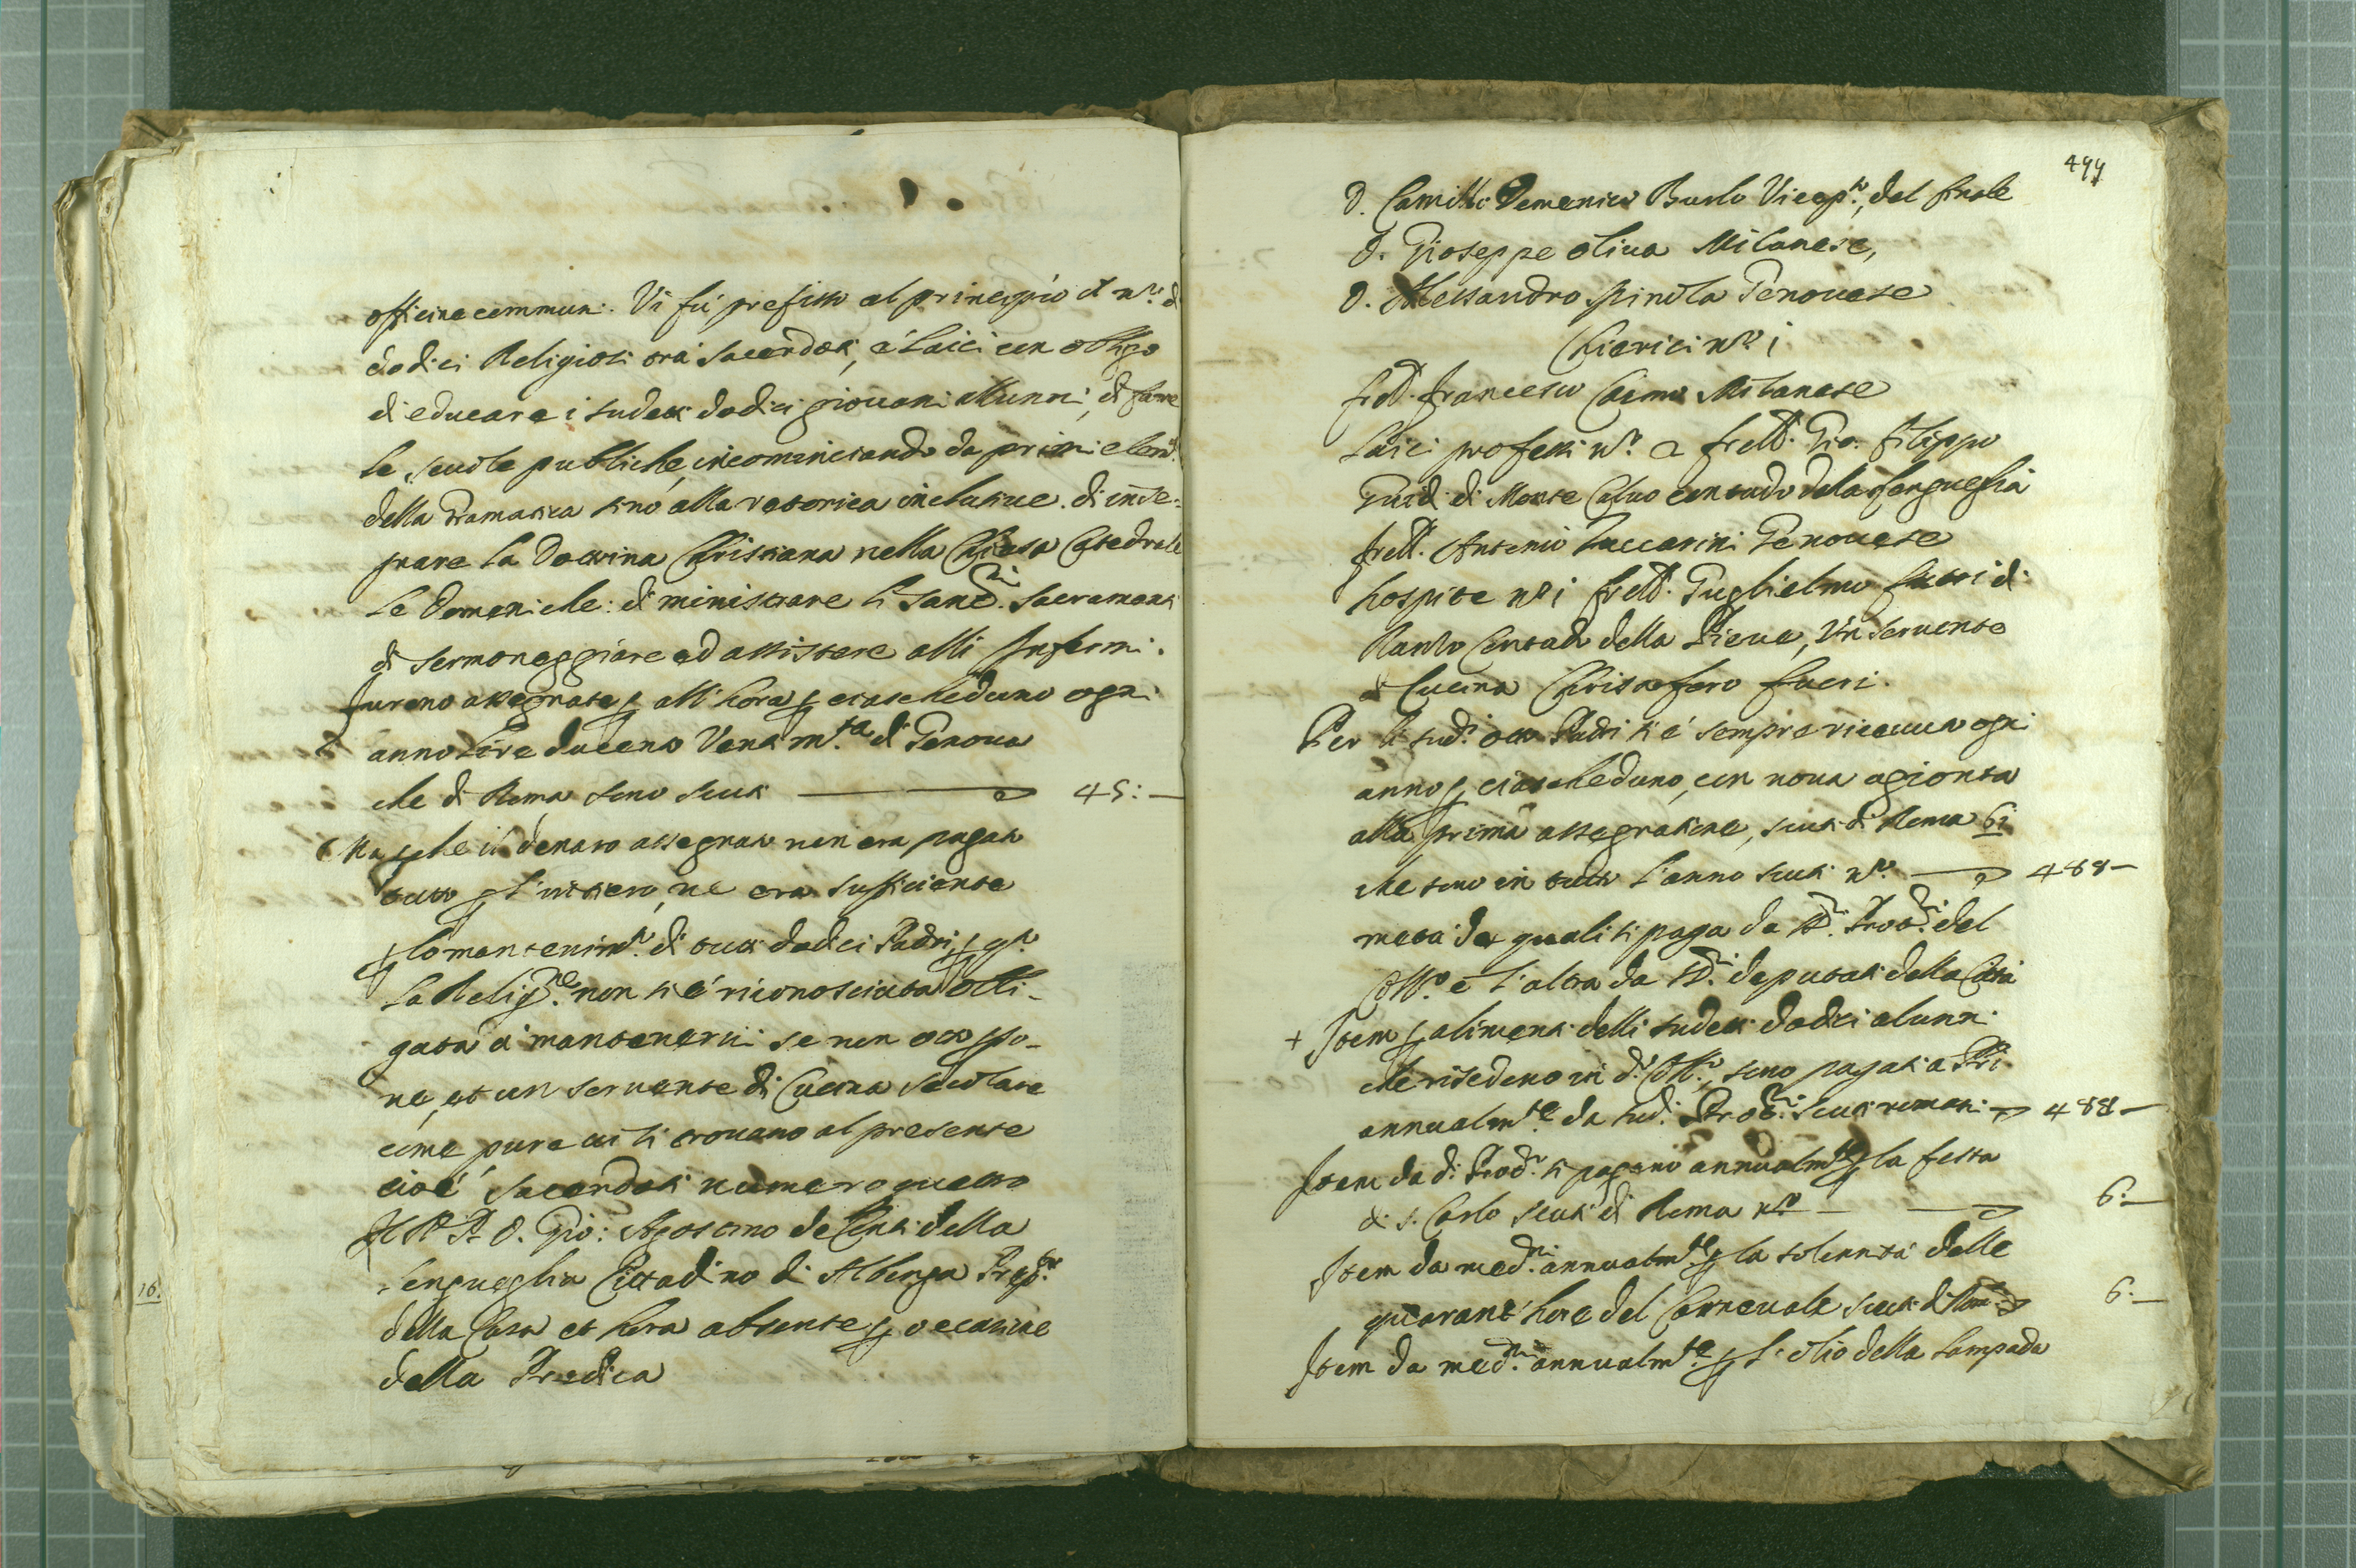 officine communi. Vi fù prefisso al principio il n.º di
dodici Religiosi trà Sacerdoti, e Laici con obligo
di educare i sudetti dodici giovani allunni, di fare
le scuole publiche, incominciando da primi elem.ti
della Gramatica sino alla retorica inclusive. di inse=
gnare la Dottrina Christiana nella Chiesa Catedrale
le Domeniche: di ministrare li Santi.mi Sacramenti
di sermoneggiare ed assistere alli Infermi.
Furono assegnate p all'hora p ciascheduno ogni
anno Lire ducento Venti m.ta di Genova
che di Roma sono scuti 45:—
Ma p che il denaro assegnato non era pagato
tutto p l'intiero, ne era sufficiente
p lo mantenim.to di tutti dodici Padri, p q.to
la Relig.ne non si è riconosciuta obli-
gata à mantenervi se non otto p so-
ne, et un servente di Cucina secolare
come pure vi si trovano al presente
cioè Sacerdoti numero quatro
Il M. P. D. Gio: Agostino de Conti della
Lengueglia Cittadino di Albenga Prep.to
della Casa et hora absente p occasione
della Predica
499
D. Camillo Domenico Burlo Vicep.to, del Finale
D. Gioseppe Oliva Milanese,
D. Alessandro Spinola Genovese
Chierici n.º i
frat. Francesco Caimo Milanese
Laici professi n.º 2 frat. Gio. Filippo
Guidi di Monte Calvo contado della Lengueglia
frat. Antonio Zuccarini Genovese
hospite n.º i frat. Guglielmo di
Ranzo Contado della Pieve, Un Servente
di Cucina Christoforo Fueri.
Per li sud.i otto Padri si è sempre ricevuto ogni
anno p ciascheduno, con nova agionta
alla prima assegnatione, scuti di Roma 6i
che sono in tutto l'anno scuti n.º 488—
metà de quali si paga da SS.ri Prot.ri del
Coll.º e l'altra da SS.ri deputati della Città
+ Item p alimenti delli sudetti dodici alunni
che risedono in d.º Coll.º, sono pagati a PP.ri
annualm.te da sud.i Prot.ri scuti romani 488—
Item da d.i Prot.ri si pagano annualm.te p la festa
di S. Carlo scuti di Roma n.º 6:—
Item da med.mi annualm.te p la solennità delle
quarant'hore del Carnevale scuti di Roma 6.—
Item da med.mi annualm.te p l'olio della Lampada
16.